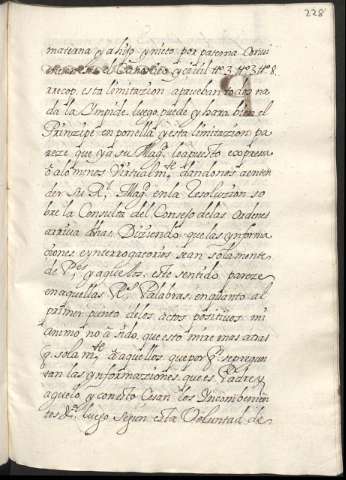 228
materna y a hijo y nieto por paterna
el y civil tt. 3. tt. 8.
recop. esta limitazion aprueban todos na
da la Ympide luego puede y hara bien el
Prinzipe en ponella y esta limitazion pa
reze que ya su Magd. la a puesto expresa
o a lo menos Virtualmte. dandonos a enten
der su Rl. Magd. en la Resoluzion so
bre la Consulta del Consejo de las Ordenes
arriva dha. Diziendo que las ynforma
ciones e ynterrogatorios sean solamente
de y aquellos este sentido pareze
en aquellas Rs. Palabras en quanto al
primer punto de los actos positivos mi
animo no a sido, que esto mire mas atras
q. sola mte. a aquellos que por se pregun
tan las ynformaziones, que es Padre y
aquelo y con esto Cesan los Yncombenien
tes &a. luego segun esta Voluntad de